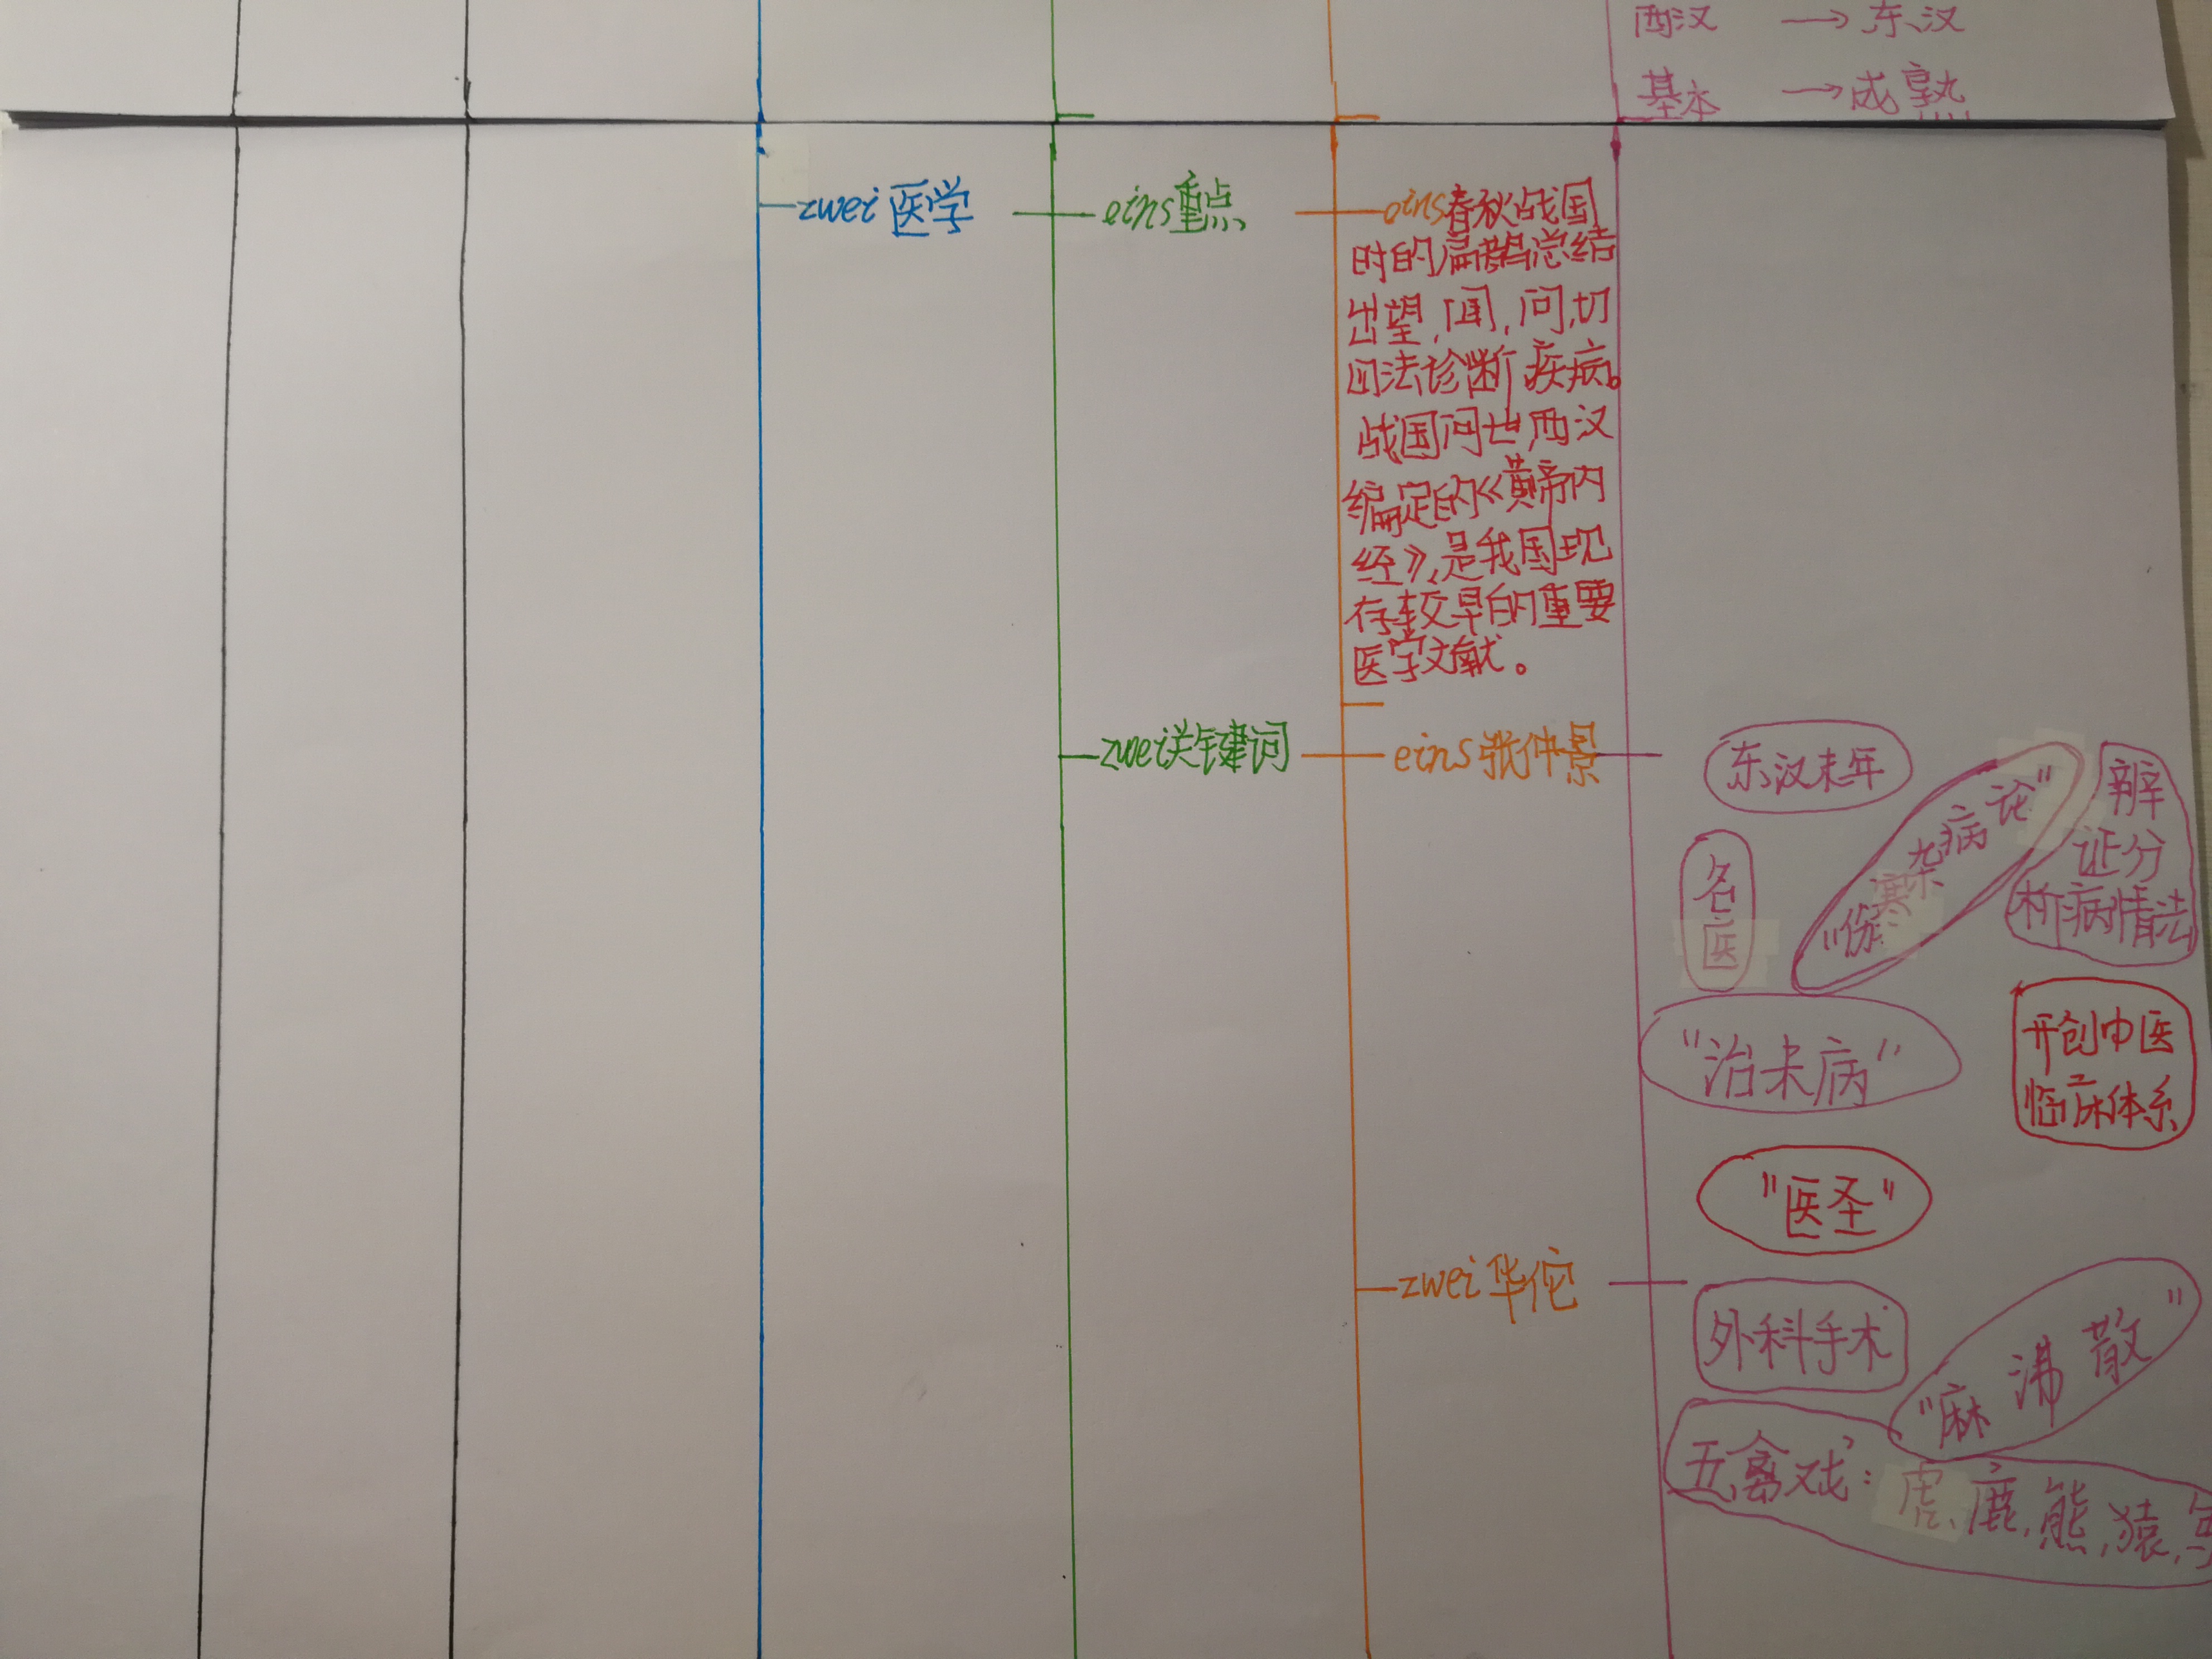 西汉 → 东汉
基本 → 成熟
zwei医学
eins重点
eins春秋战国
时的扁鹊总结
出望,闻,问,切
四法诊断疾病。
战国问世,西汉
编定的《黄帝内
经》,是我国现
存较早的重要
医学文献。
zwei关键词
eins张仲景
东汉末年
"伤寒杂病论"
辨
证分
析病情法
名医
"治未病"
开创中医
临床体系
"医圣"
zwei华佗
外科手术
"麻沸散"
五禽戏:虎,鹿,熊,猿,